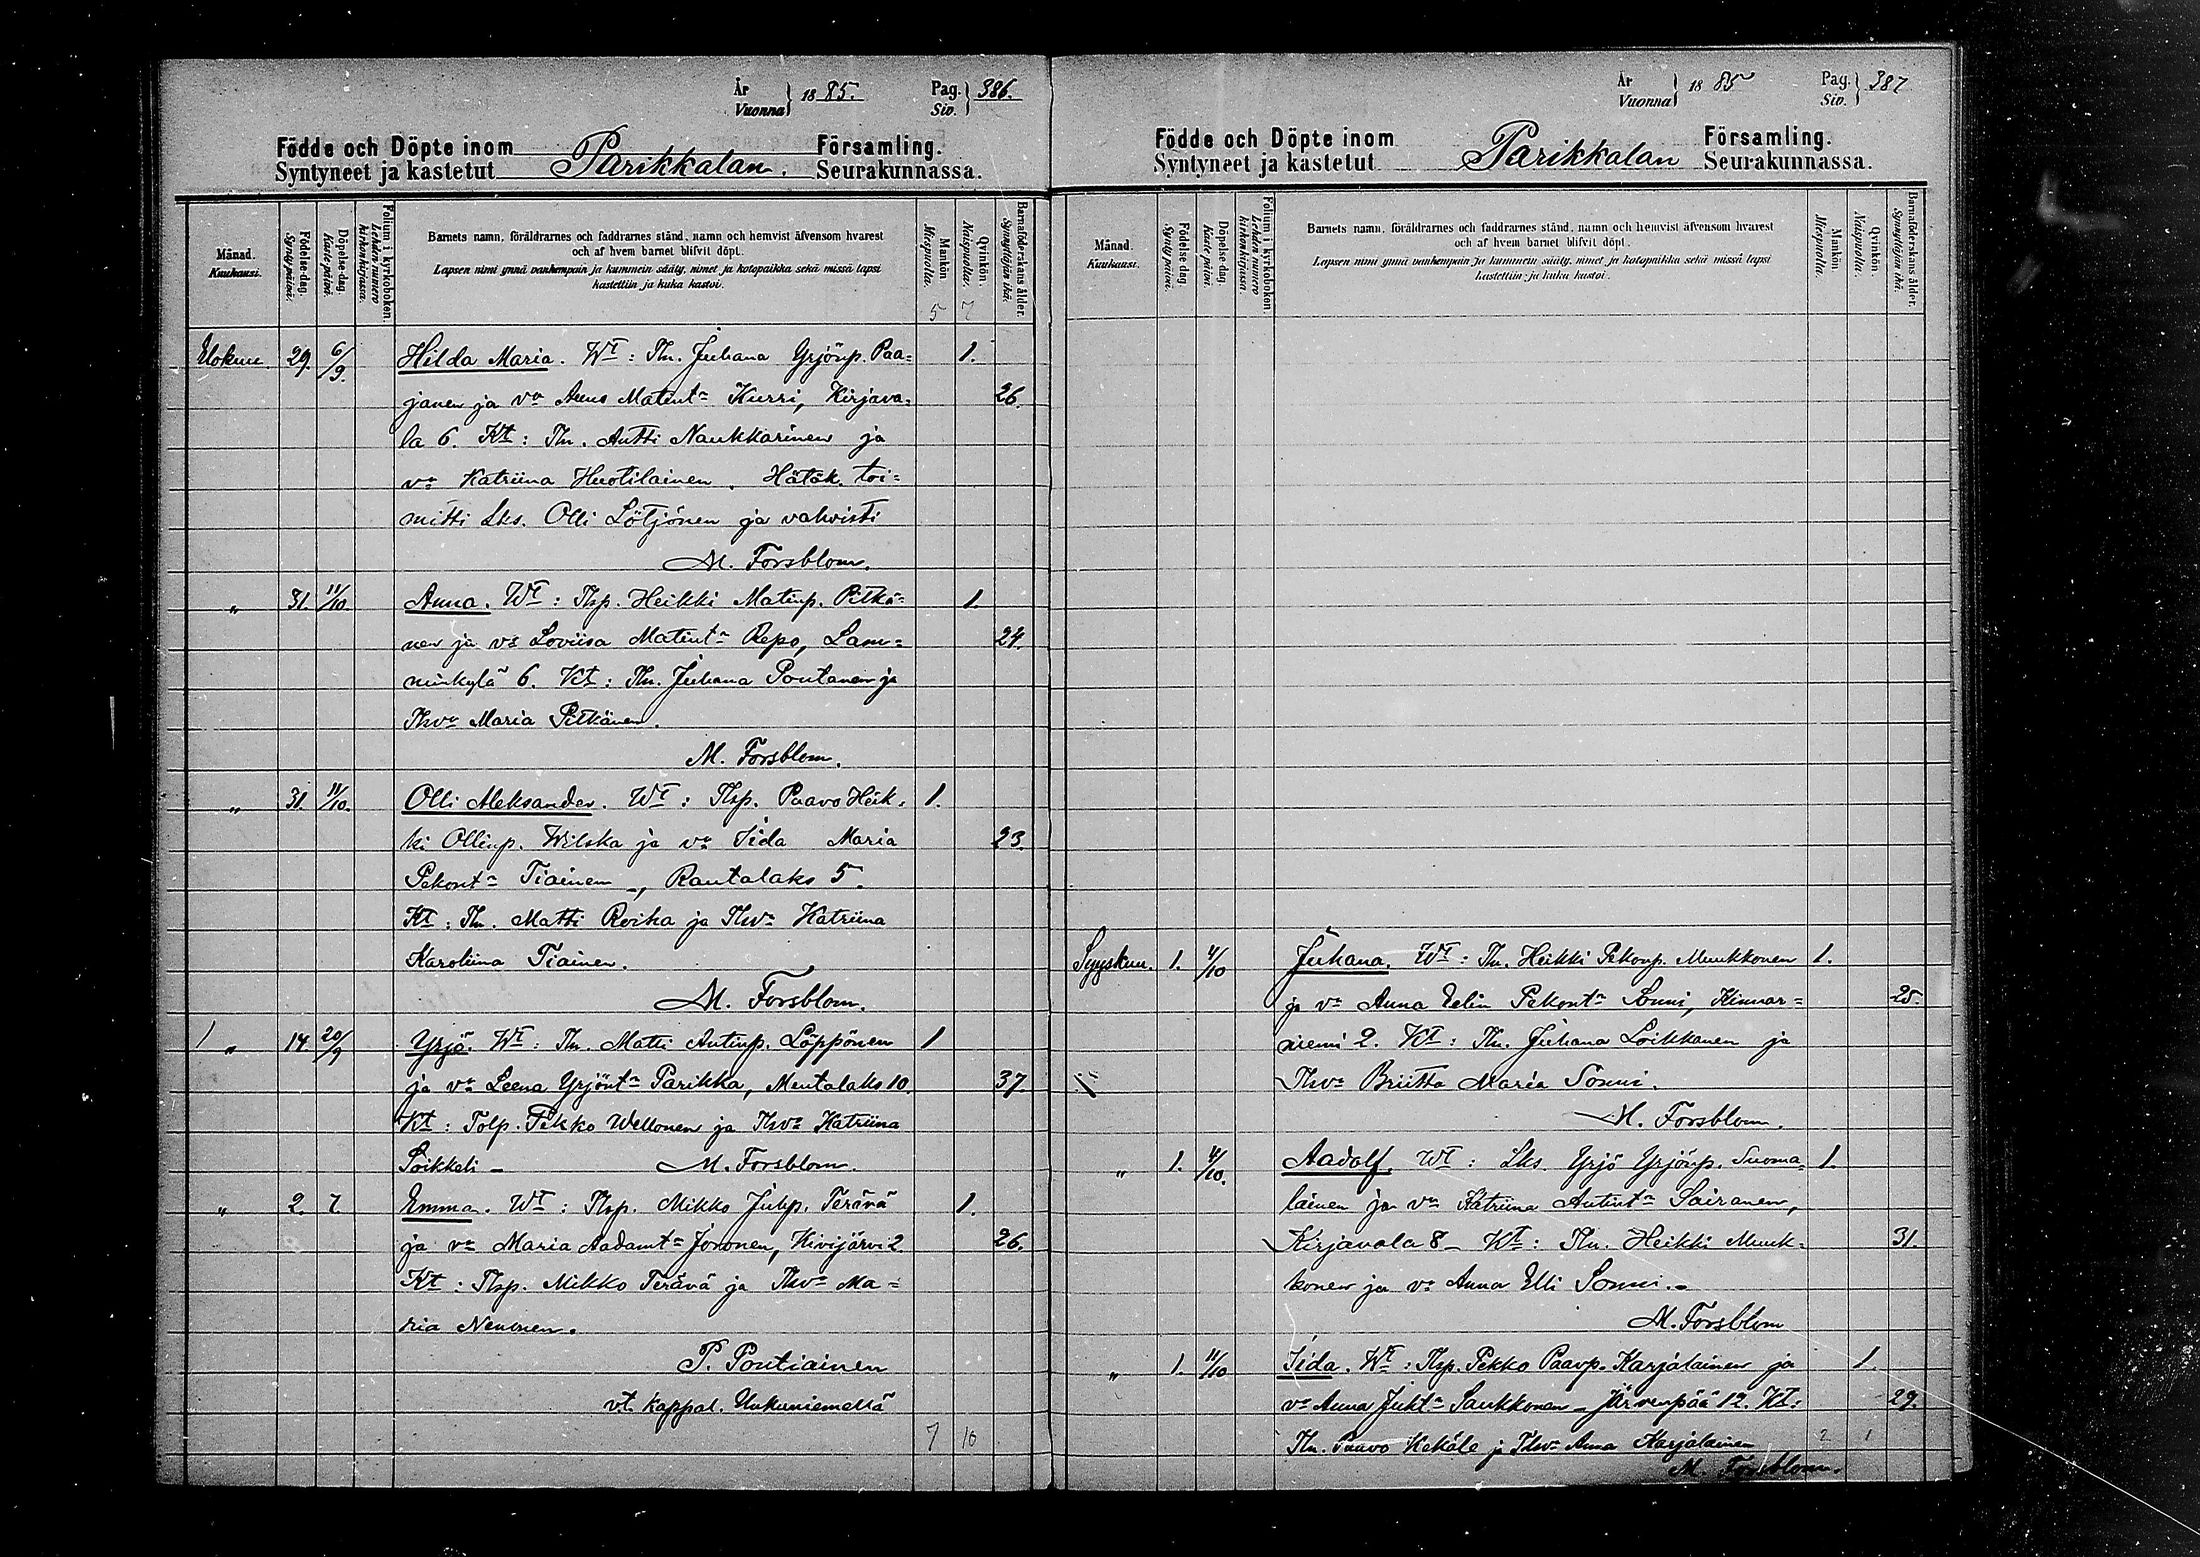 År
Vuonna } 1885.
Pag.
Siv. } 386.
Födde och Döpte inom Församling.
Syntyneet ja kastetut Parikkalan. Seurakunnassa.
Månad.
Kuukausi.
Födelse-dag.
Syntypäivä.
Döpelse-dag.
Kaste-päivä.
Folium i kyrkoboken.
Lehden numero kirkonkirjassa.
Barnets namn, föräldrarnes och faddrarnes stånd, namn och hemvist äfvensom hvarest
och af hvem barnet blifvit döpt.
Lapsen nimi ynnä vanhempain ja kummein sääty, nimet ja kotopaikka sekä missä lapsi
kastettiin ja kuka kastoi.
Mankön.
Miespuolta.
Qvinkön.
Naispuolta.
Barnaföderskans ålder.
Synnyttäjän ikä.
5 7
Elokuu. 29. 6/9. Hilda Maria. Wt: Tln. Juhana Yrjönp. Paa= 1.
janen ja vo Anna Matint. Kurri, Kirjava= 26.
la 6. Kt: Tln. Antti Naukkarinen ja
vo Katriina Huotilainen. Hätäk. toi=
mitti Lks. Olli Lötjönen ja vahvisti
M. Forsblom.
" 31. 11/10. Anna. Wt: Tlsp. Heikki Matinp. Pitkä= 1.
nen ja vo Loviisa Matint. Repo, Lam= 24.
minkylä 6. Kt: Tln. Juhana Pontanen ja
Tlvo Maria Pitkänen.
M. Forsblom.
" 31. 11/10. Olli Aleksander. Wt: Tlsp. Paavo Heik= 1.
ki Ollinp. Wilska ja vo Iida Maria 23.
Pekont. Tiainen, Rautalaks 5.
Kt: Tln. Matti Roika ja Tlvo Katriina
Karoliina Tiainen.
M. Forsblom.
" 14. 20/9 Yrjö. Wt: Tln. Matti Antinp. Löppönen 1
ja vo Leena Yrjönt. Parikka, Mentalaks 10. 37.
Kt: Tolp. Pekko Wellonen ja Tlvo Katriina
Soikkeli – M. Forsblom.
" 2. 7. Emma. Wt: Tlsp. Mikko Juhp. Terävä 1.
ja vo Maria Aadamt. Joronen, Kivijärvi 2. 26.
Kt: Tlsp. Mikko Terävä ja Tlvo Ma=
ria Nenonen.
P. Pontiainen
vt. kappal. Uukuniemellä
7 10
År
Vuonna } 1885
Pag.
Siv. } 387
Födde och Döpte inom Församling.
Syntyneet ja kastetut Parikkalan Seurakunnassa.
Månad.
Kuukausi.
Födelse-dag.
Syntypäivä.
Döpelse-dag.
Kaste-päivä.
Folium i kyrkoboken
Lehden numero kirkonkirjassa.
Barnets namn, föräldrarnes och faddrarnes stånd, namn och hemvist äfvensom hvarest
och af hvem barnet blifvit döpt.
Lapsen nimi ynnä vanhempain ja kummein sääty, nimet ja kotopaikka sekä missä lapsi
kastettiin ja kuka kastoi.
Mankön.
Miespuolta.
Qvinkön.
Naispuolta.
Barnaföderskans ålder.
Synnyttäjän ikä.
Syyskuu. 1. 4/10 Juhana. Wt: Tln. Heikki Pekonp. Munkkonen 1.
ja vo Anna Eelin Pekont. Sonni, Kinnar= 25.
niemi 2. Kt: Tln. Juhana Loikkanen ja
Tlvo Briitta Maria Sonni.
M. Forsblom.
" 1. 4/10. Aadolf. Wt: Lks. Yrjö Yrjönp. Suoma= 1.
lainen ja vo Katriina Antint. Sairanen,
Kirjavala 8 – Kt: Tln. Heikki Munk= 31.
konen ja vo Anna Elli Sonni. –
M. Forsblom
" 1. 11/10 Iida. Wt: Tlsp. Pekko Paavp. Karjalainen ja 1.
vo Anna Juht. Saukkonen – Järvenpää 12. Kt: 29.
Tln. Paavo Kekäle ja Tlvo Anna Karjalainen 2 1
M. Forsblom.